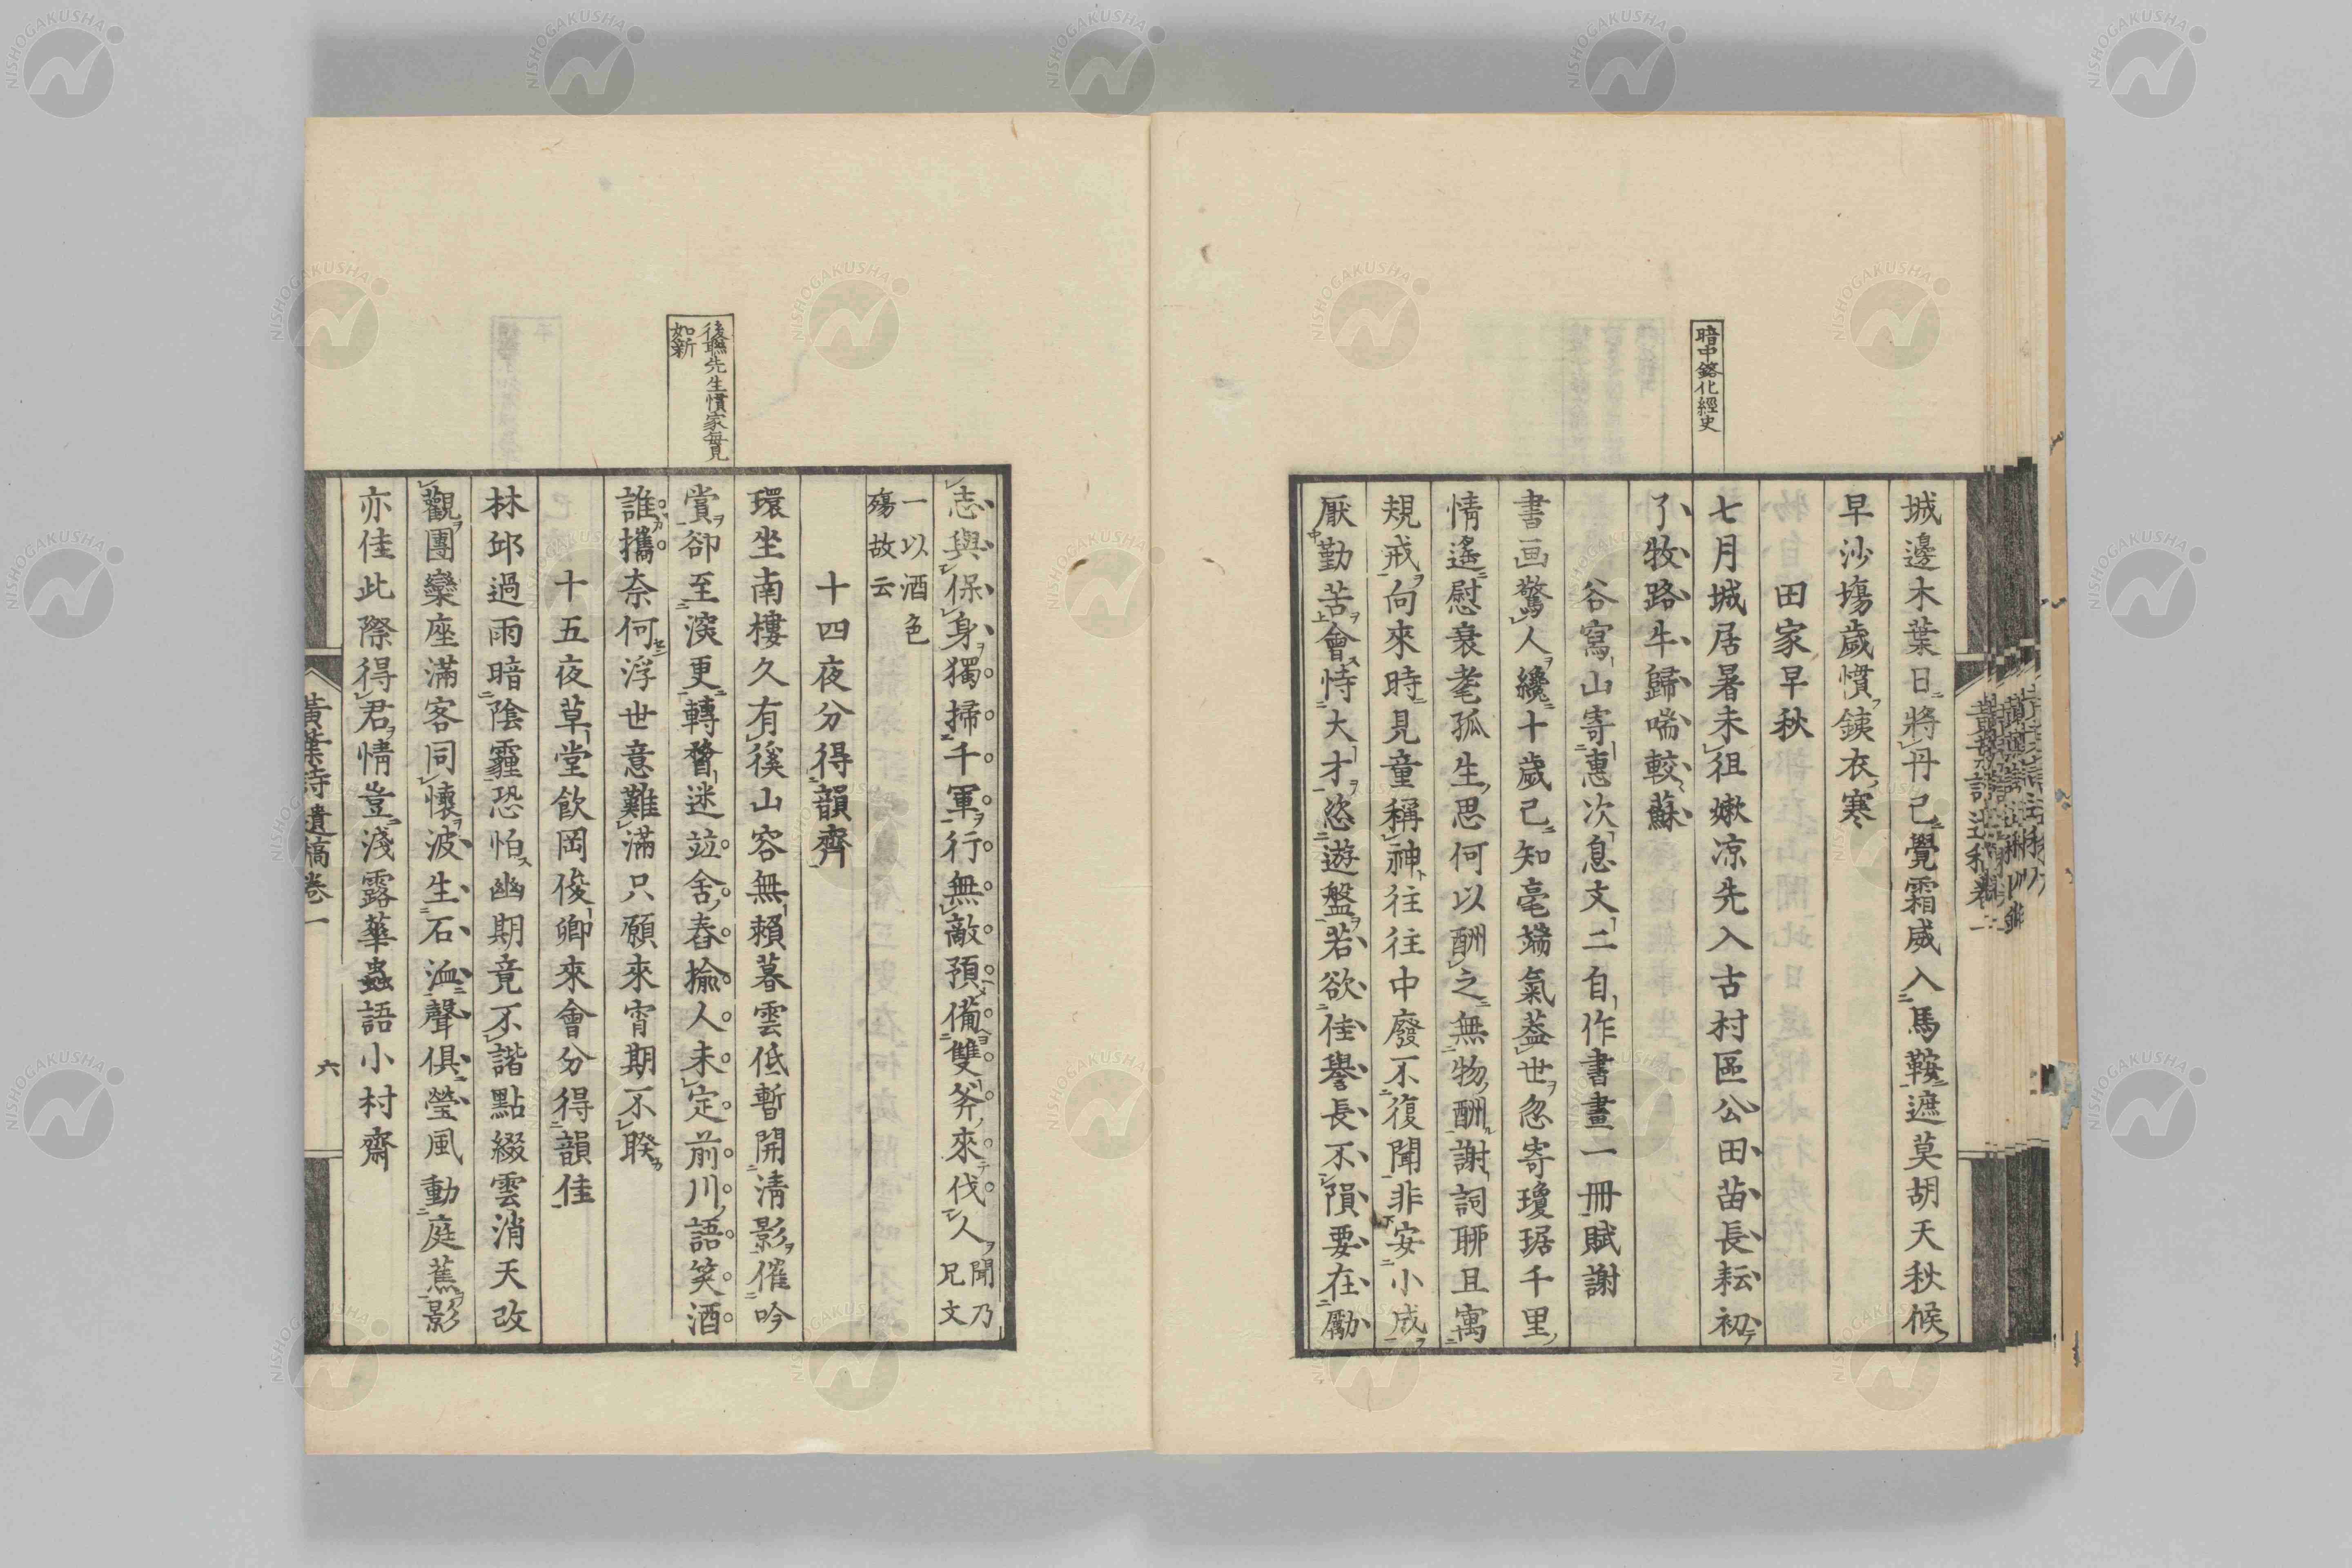 暗中鎔化經史
城邊木葉日將丹已覺霜威入馬鞍遮莫胡天秋候
早沙塲歲慣鉄衣寒
田家早秋
七月城居暑未徂嫩凉先入古村區公田苗長耘初
了牧路牛歸喘較蘇
谷寫山寄惠次息文二自作書畫一冊賦謝
書画驚人纔十歲已知毫端氣葢世忽寄瓊琚千里
情遙慰衰耄孤生思何以酬之無物酬謝詞聊且寓
規戒向來時見童稱神往往中廢不復聞非安小成
厭勤苦會恃大才恣遊盤若欲佳譽長不隕要在勵
後聯先生慣家每見
如新
志與保身獨掃千軍行無敵預備雙斧來伐人聞乃
兄文
一以酒色
殤故云
十四夜分得韻齊
環坐南樓久有徯山容無賴暮雲低暫開淸影催吟
賞卻至深更轉瞀迷竝舍舂揄人未定前川語笑酒
誰攜奈何浮世意難滿只願來宵期不睽
十五夜草堂飮岡俊卿來會分得韻佳
林邱過雨暗陰霾恐怕幽期竟不諧點綴雲消天改
觀團欒座滿客同懷波生石洫聲俱瑩風動庭蕉影
亦佳此際得君情豈淺露華蟲語小村齋
黃葉詩遺稿卷一
六
NISHOGAKUSHA